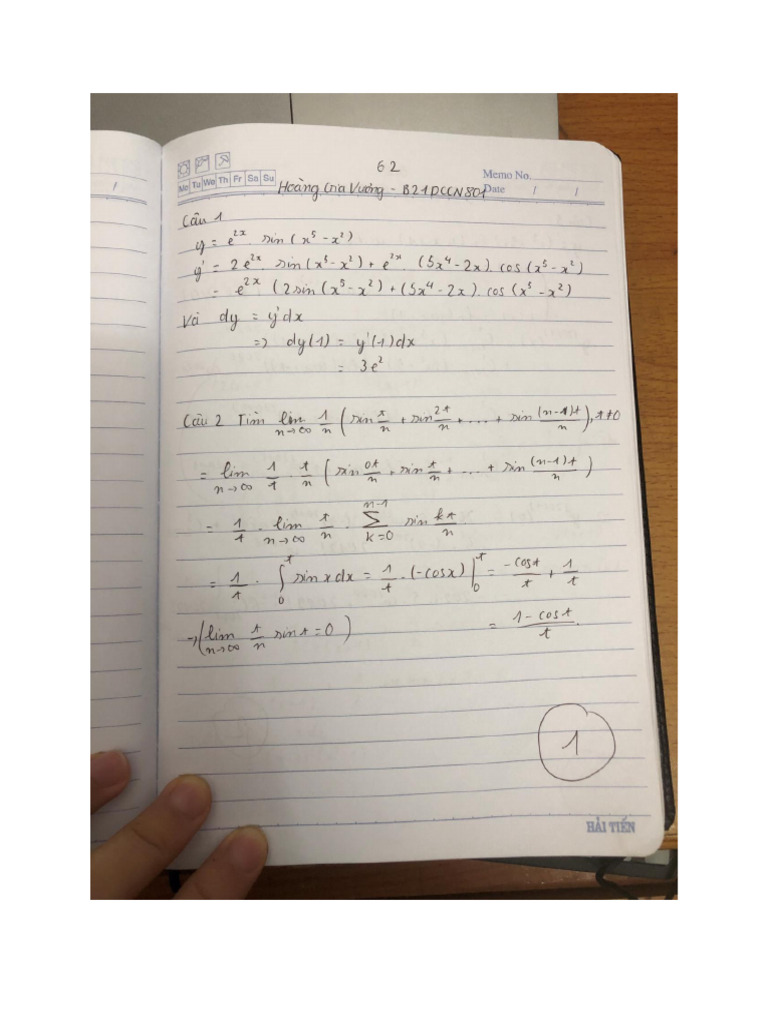 62
Memo No.
Mo Tu We Th Fr Sa Su
Hoàng Gia Vương - B21DCCN801
Date / /
Câu 1
y = e^{2x} . sin(x^5 - x^2)
y' = 2e^{2x} . sin(x^5 - x^2) + e^{2x} . (5x^4 - 2x) . cos(x^5 - x^2)
= e^{2x} (2sin(x^5 - x^2) + (5x^4 - 2x) . cos(x^5 - x^2)
Và dy = y'dx
=> dy(1) = y'(1)dx
= 3e^2
Câu 2 Tìm lim_{n→∞} 1/n (sin t/n + sin 2t/n + ... + sin (n-1)t/n), t≠0
= lim_{n→∞} 1/t . t/n (sin 0t/n + sin t/n + ... + sin (n-1)t/n)
= 1/t . lim_{n→∞} t/n . ∑_{k=0}^{n-1} sin kt/n
= 1/t . ∫_0^t sin x dx = 1/t . (-cos x) |_0^t = -cos t/t + 1/t
→ (lim_{n→∞} t/n sin t = 0) = 1 - cos t/t .
1
HẢI TIẾN